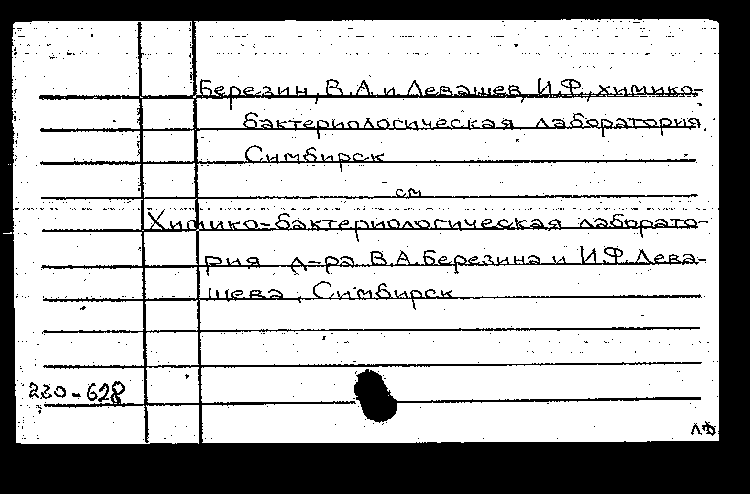 Березин, В.А. и Левашев, И.Ф., химико-
бактериологическая лаборатория
Симбирск
см
Химико=бактериологическая лаборато-
рия д=ра В.А.Березина и И.Ф.Лева-
шева, Симбирск
220-628
ЛФ